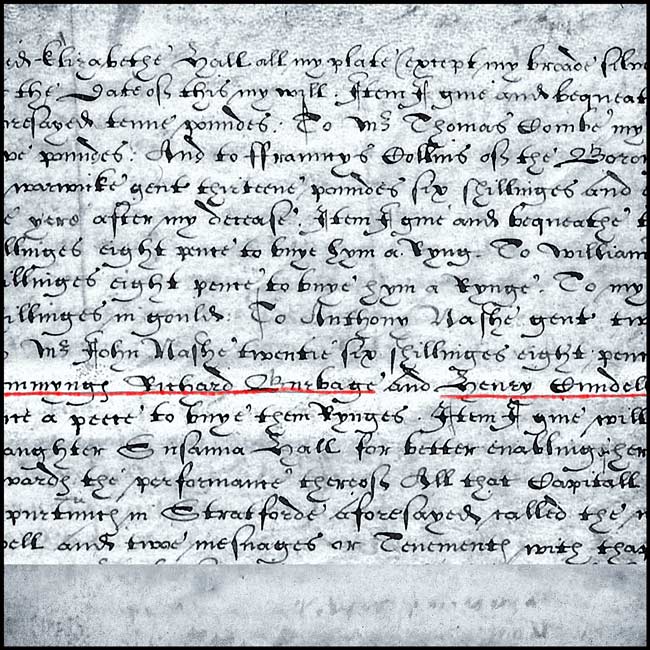 ed Elizabethe Hall all my plate (except my broade silve
the Date of this my will. Item I gyue and bequeat
resayed tenne poundes. To Mr Thomas Combe my
ve poundes. And to ffrauncys Collins of the Borou
warwicke gent thirteene poundes six shillinges and
e yere after my decease. Item I gyue and bequeathe t
llinges eight pence to buye hym a Ryng. To William
illinges eight pence to buye hym a Rynge. To my
illinges in gould. To Anthony Nashe gent twe
Mr John Nashe twentie six shillinges eight penc
mmynges Richard Burbage and Henry Cundell
nce a peece to buye them Rynges. Item I gyue will
aughter Susanna Hall for better enabling of her
wardes the performance thereof All that Capitall
in Stratforde aforesayed called the n
pell and twoe mesuages or Tenementes with thap